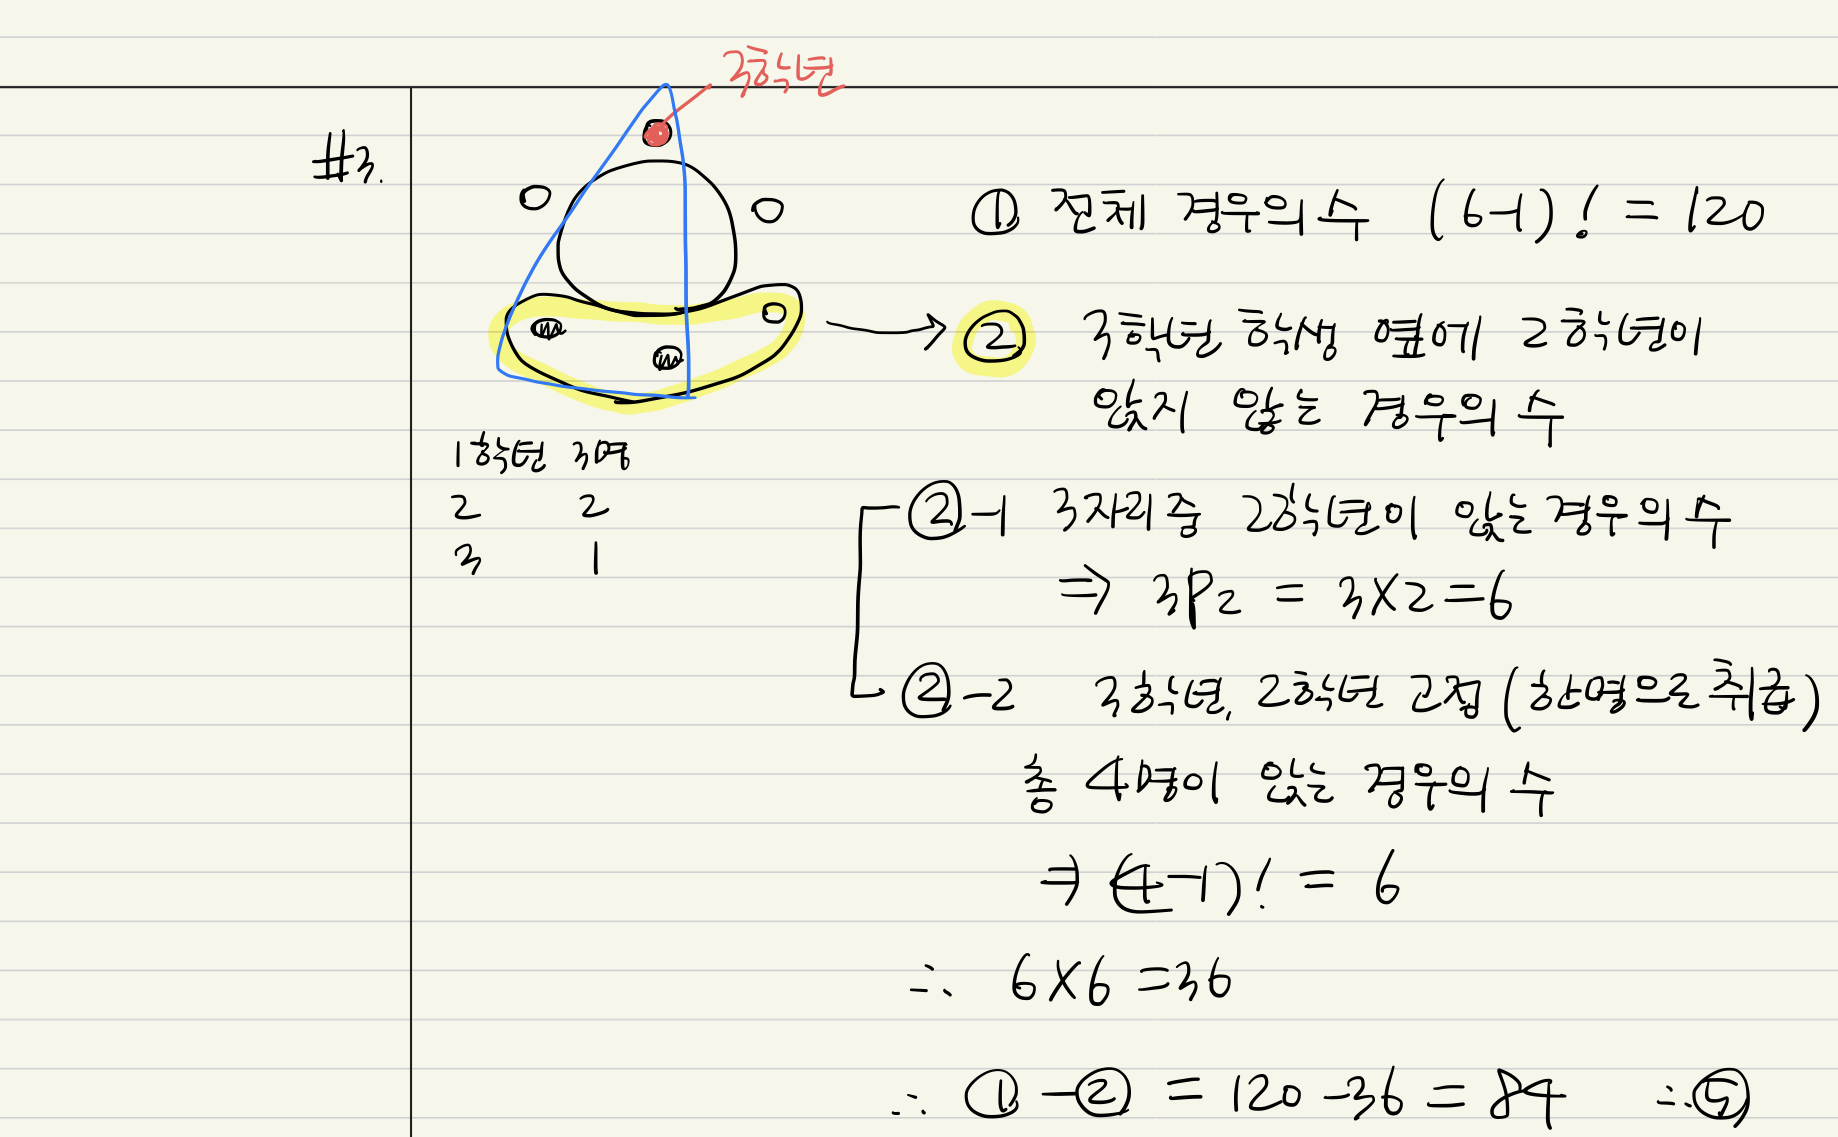 3학년
#3.
① 전체 경우의 수 (6-1)! = 120
② 3학년 학생 옆에 2학년이
앉지 않는 경우의 수
1학년 3명
2 2
3 1
②-1 3자리 중 2학년이 앉는 경우의 수
⇒ 3P2 = 3×2=6
②-2 3학년, 2학년 고정 (한명으로 취급)
총 4명이 앉는 경우의 수
⇒ (4-1)! = 6
∴ 6×6=36
∴ ①-② = 120-36 = 84 ∴⑤